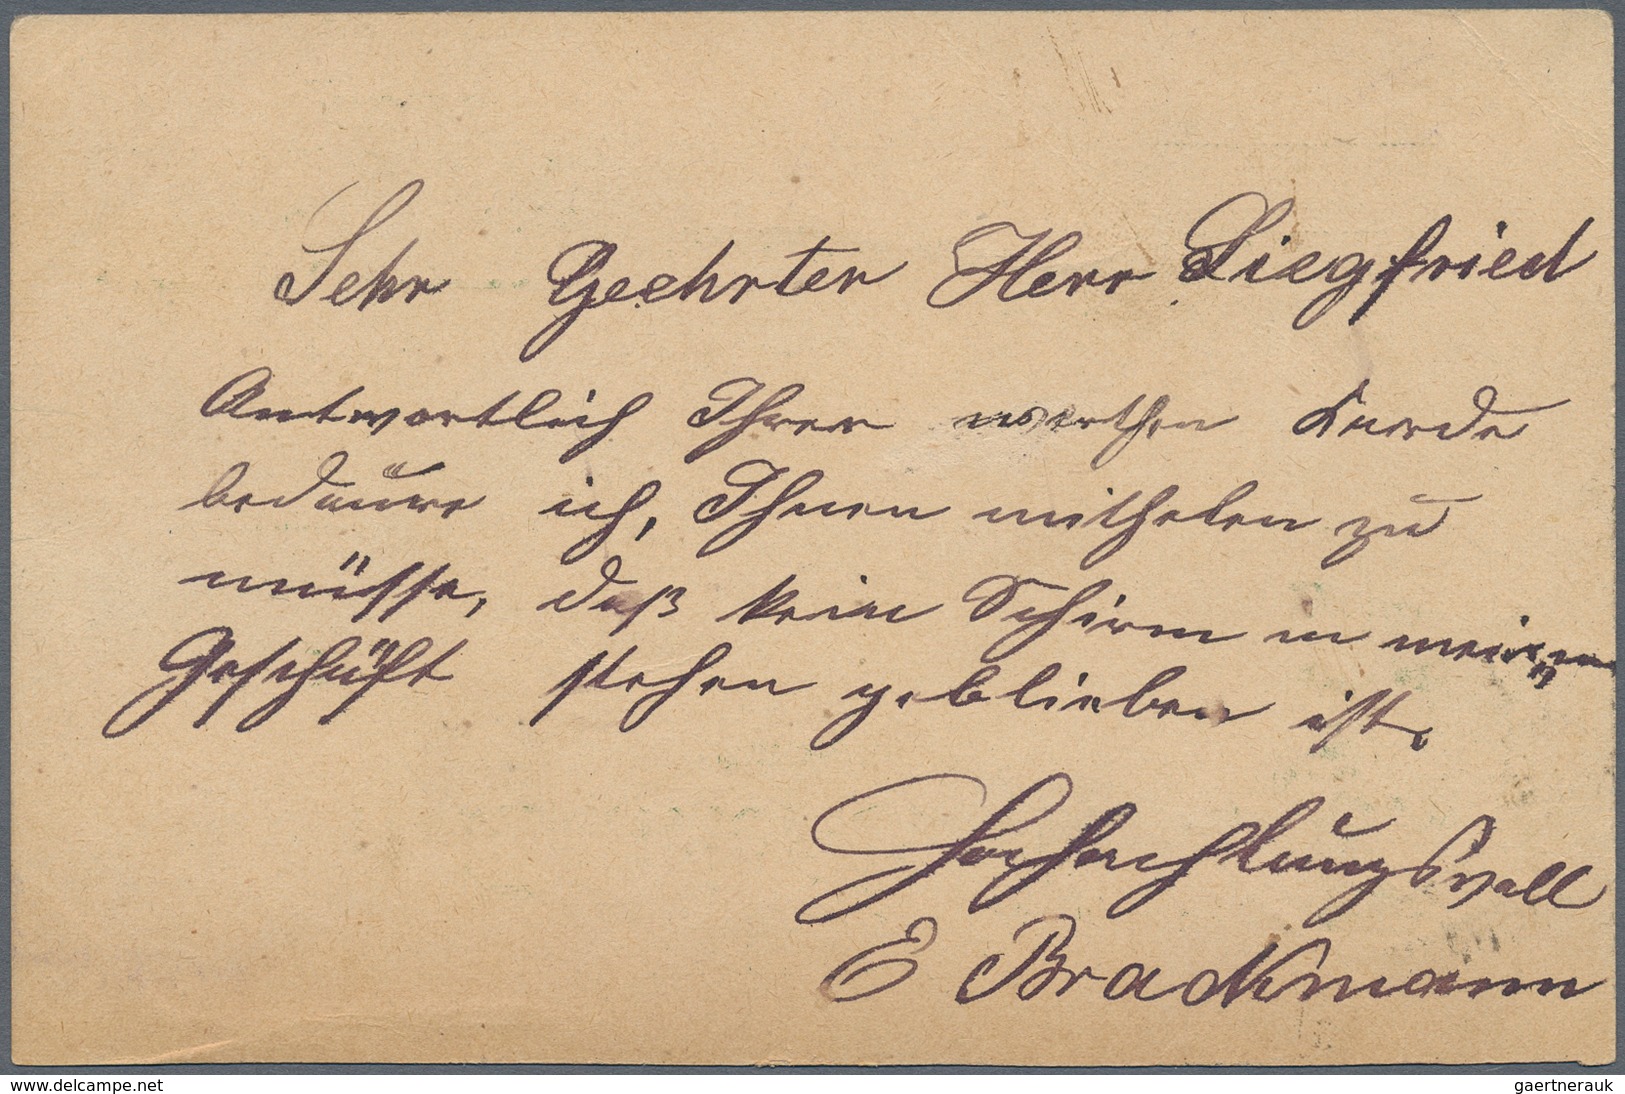 Sehr Geehrter Herr Siegfried
Antwortlich Ihrer werthen Karde
bedaure ich, Ihnen mithelen zu
müsse, daß kein Schirm in meinem
Geschäft stehen geblieben ist.
Hochachtungsvoll
E Brackmann
www.delcampe.net
gaertnerauk